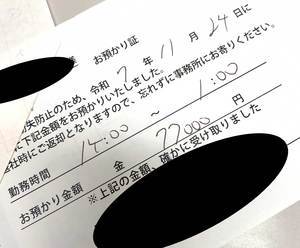 お預かり証
失防止のため、令和 7 年 11 月 24 日に
に下記金額をお預かりいたしました。
社時にご返却となりますので、忘れずに事務所にお寄りください。
勤務時間 14:00 ～ 1:00
お預かり金額 金 77000 円
※上記の金額、確かに受け取りました